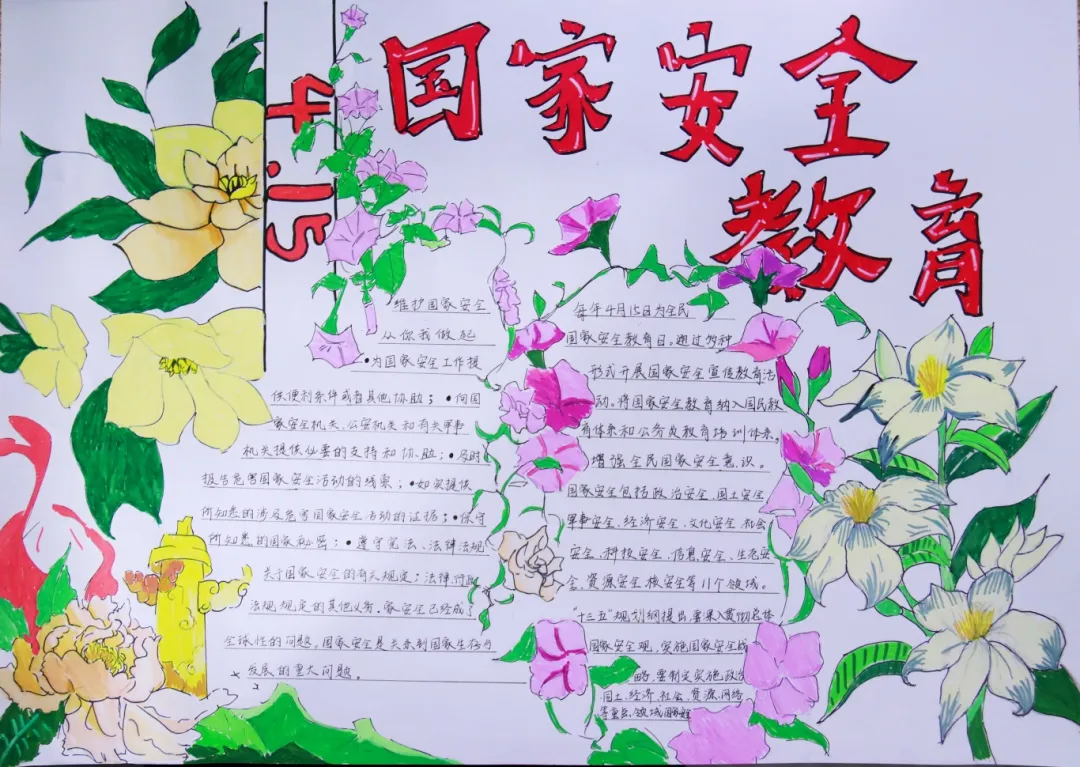 国家安全
教育
4.15
维护国家安全
从你我做起
•为国家安全工作提
供便利条件或者其他协助；•向国
家安全机关、公安机关和有关军事
机关提供必要的支持和协助；•及时
报告危害国家安全活动的线索；•如实提供
所知悉的涉及危害国家安全活动的证据；•保守
所知悉的国家秘密；•遵守宪法、法律法规
关于国家安全的有关规定；法律、行政
法规规定的其他义务。家安全已经成了
全球性的问题。国家安全是关系到国家生存与
发展的重大问题。
每年4月15日为全民
国家安全教育日。通过多种
形式开展国家安全宣传教育活
动。将国家安全教育纳入国民教
育体系和公务员教育培训体系。
增强全民国家安全意识。
国家安全包括政治安全、国土安全
军事安全、经济安全、文化安全、社会
安全、科技安全、信息安全、生态安
全、资源安全、核安全等11个领域。
"十三五"规划纲提出要深入贯彻总体
国家安全观，实施国家安全战
略，要制定实施政治
国土、经济、社会、资源、网络
等重点领域国家